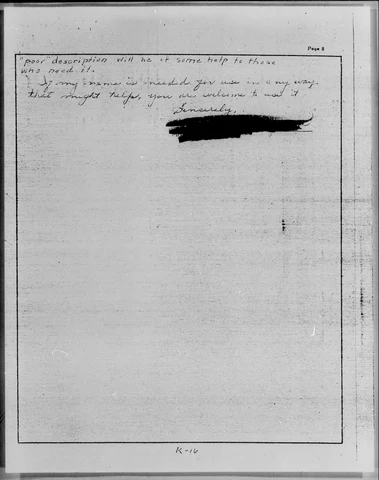 Page 8
"poor" description will be of some help to those
who need it.
If my name is needed for use in any way
that might help, you are welcome to use it
Sincerely,
K-16